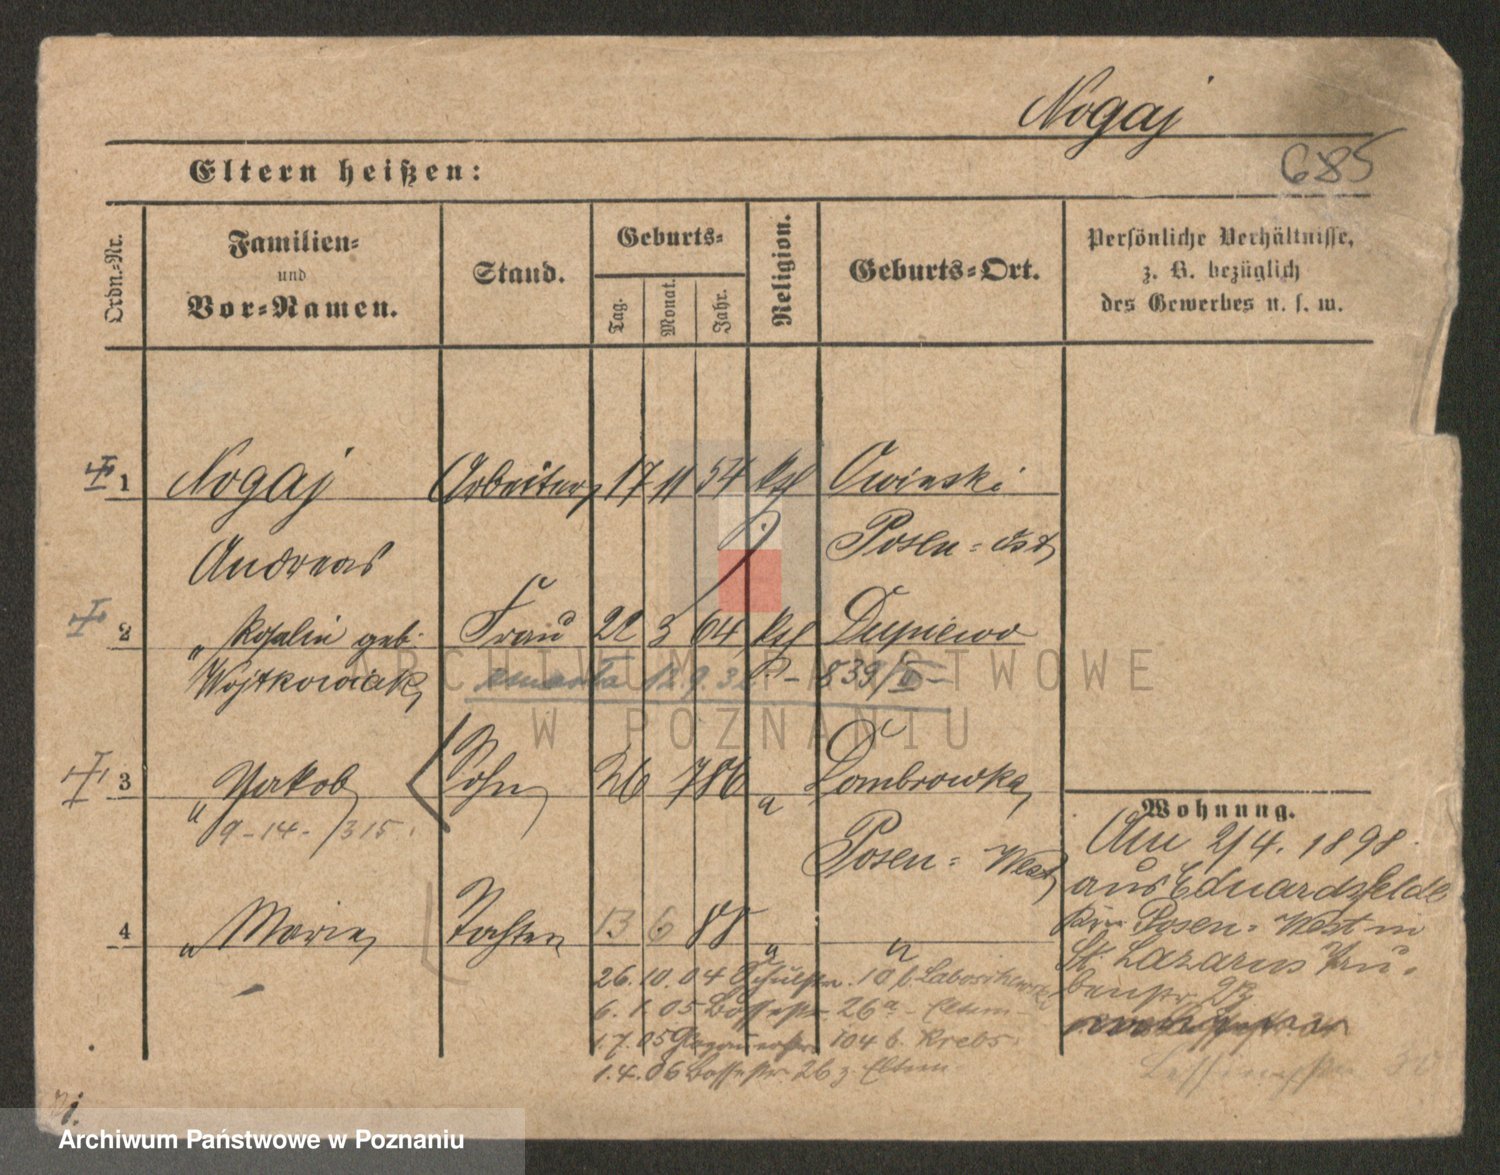 Nogaj
685
Eltern heißen:
Ordn.-Nr.
Familien-
und
Vor-Namen.
Stand.
Geburts-
Tag.
Monat.
Jahr.
Religion.
Geburts-Ort.
Persönliche Verhältnisse,
z. B. bezüglich
des Gewerbes u. s. w.
1 Nogaj Arbeiter 17 11 54 kth Owinski
Andreas Posen-Ost
2 " Rosalie geb. Frau 22 3 64 kth Dupiewo
Wojtkowiak zmarła 12.9.32 839/II
3 " Jakob Sohn 26 7 86 " Dombrowka
9-14-/315. Posen-West
Wohnung.
Am 2/4. 1898
aus Eduardsfelde
Kr. Posen-West in
St. Lazarus
4 " Marie Tochter 13 6 88 " "
26.10.04 Schulstr. 10 b.
6.1.05 Bosestr. 26a - Eltern
1.7.05 Glogauerstr. 104 b. Krebs
1.4.06 Bossestr. 26 z. Eltern
ARCHIWUM PAŃSTWOWE
W POZNANIU
Archiwum Państwowe w Poznaniu